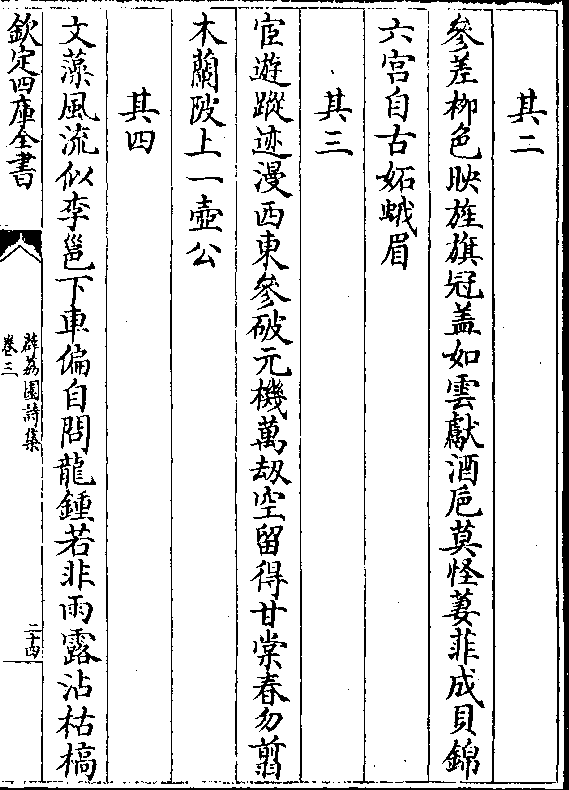 其二
參差柳色映旌旗冠盖如雲獻酒巵莫怪萋菲成貝錦
六宫自古妬蛾眉
其三
宦遊蹤迹漫西東參破元機萬刼空留得甘棠春勿翦
木蘭陂上一壺公
其四
文藻風流似李邕下車偏自問龍鍾若非雨露沾枯槁
欽定四庫全書
薜荔園詩集
卷三
二十四